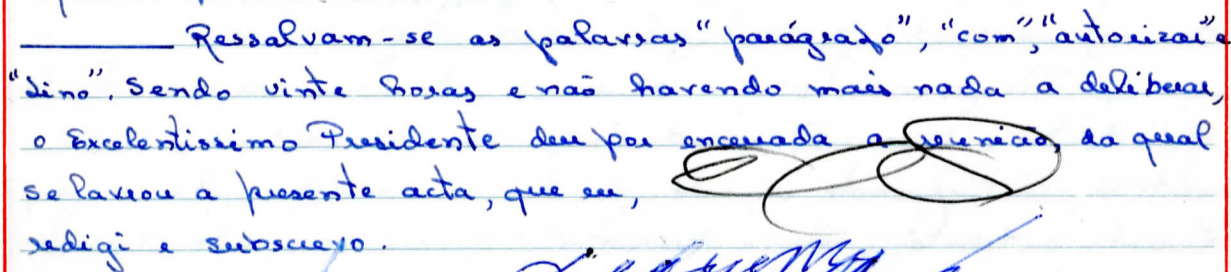 Ressalvam-se as palavras "parágrafo", "com", "autorizar" e
"sino". Sendo vinte horas e não havendo mais nada a deliberar,
o Excelentissimo Presidente deu por encerrada a reunião, da qual
se lavrou a presente acta, que eu,
redigi e subscrevo.